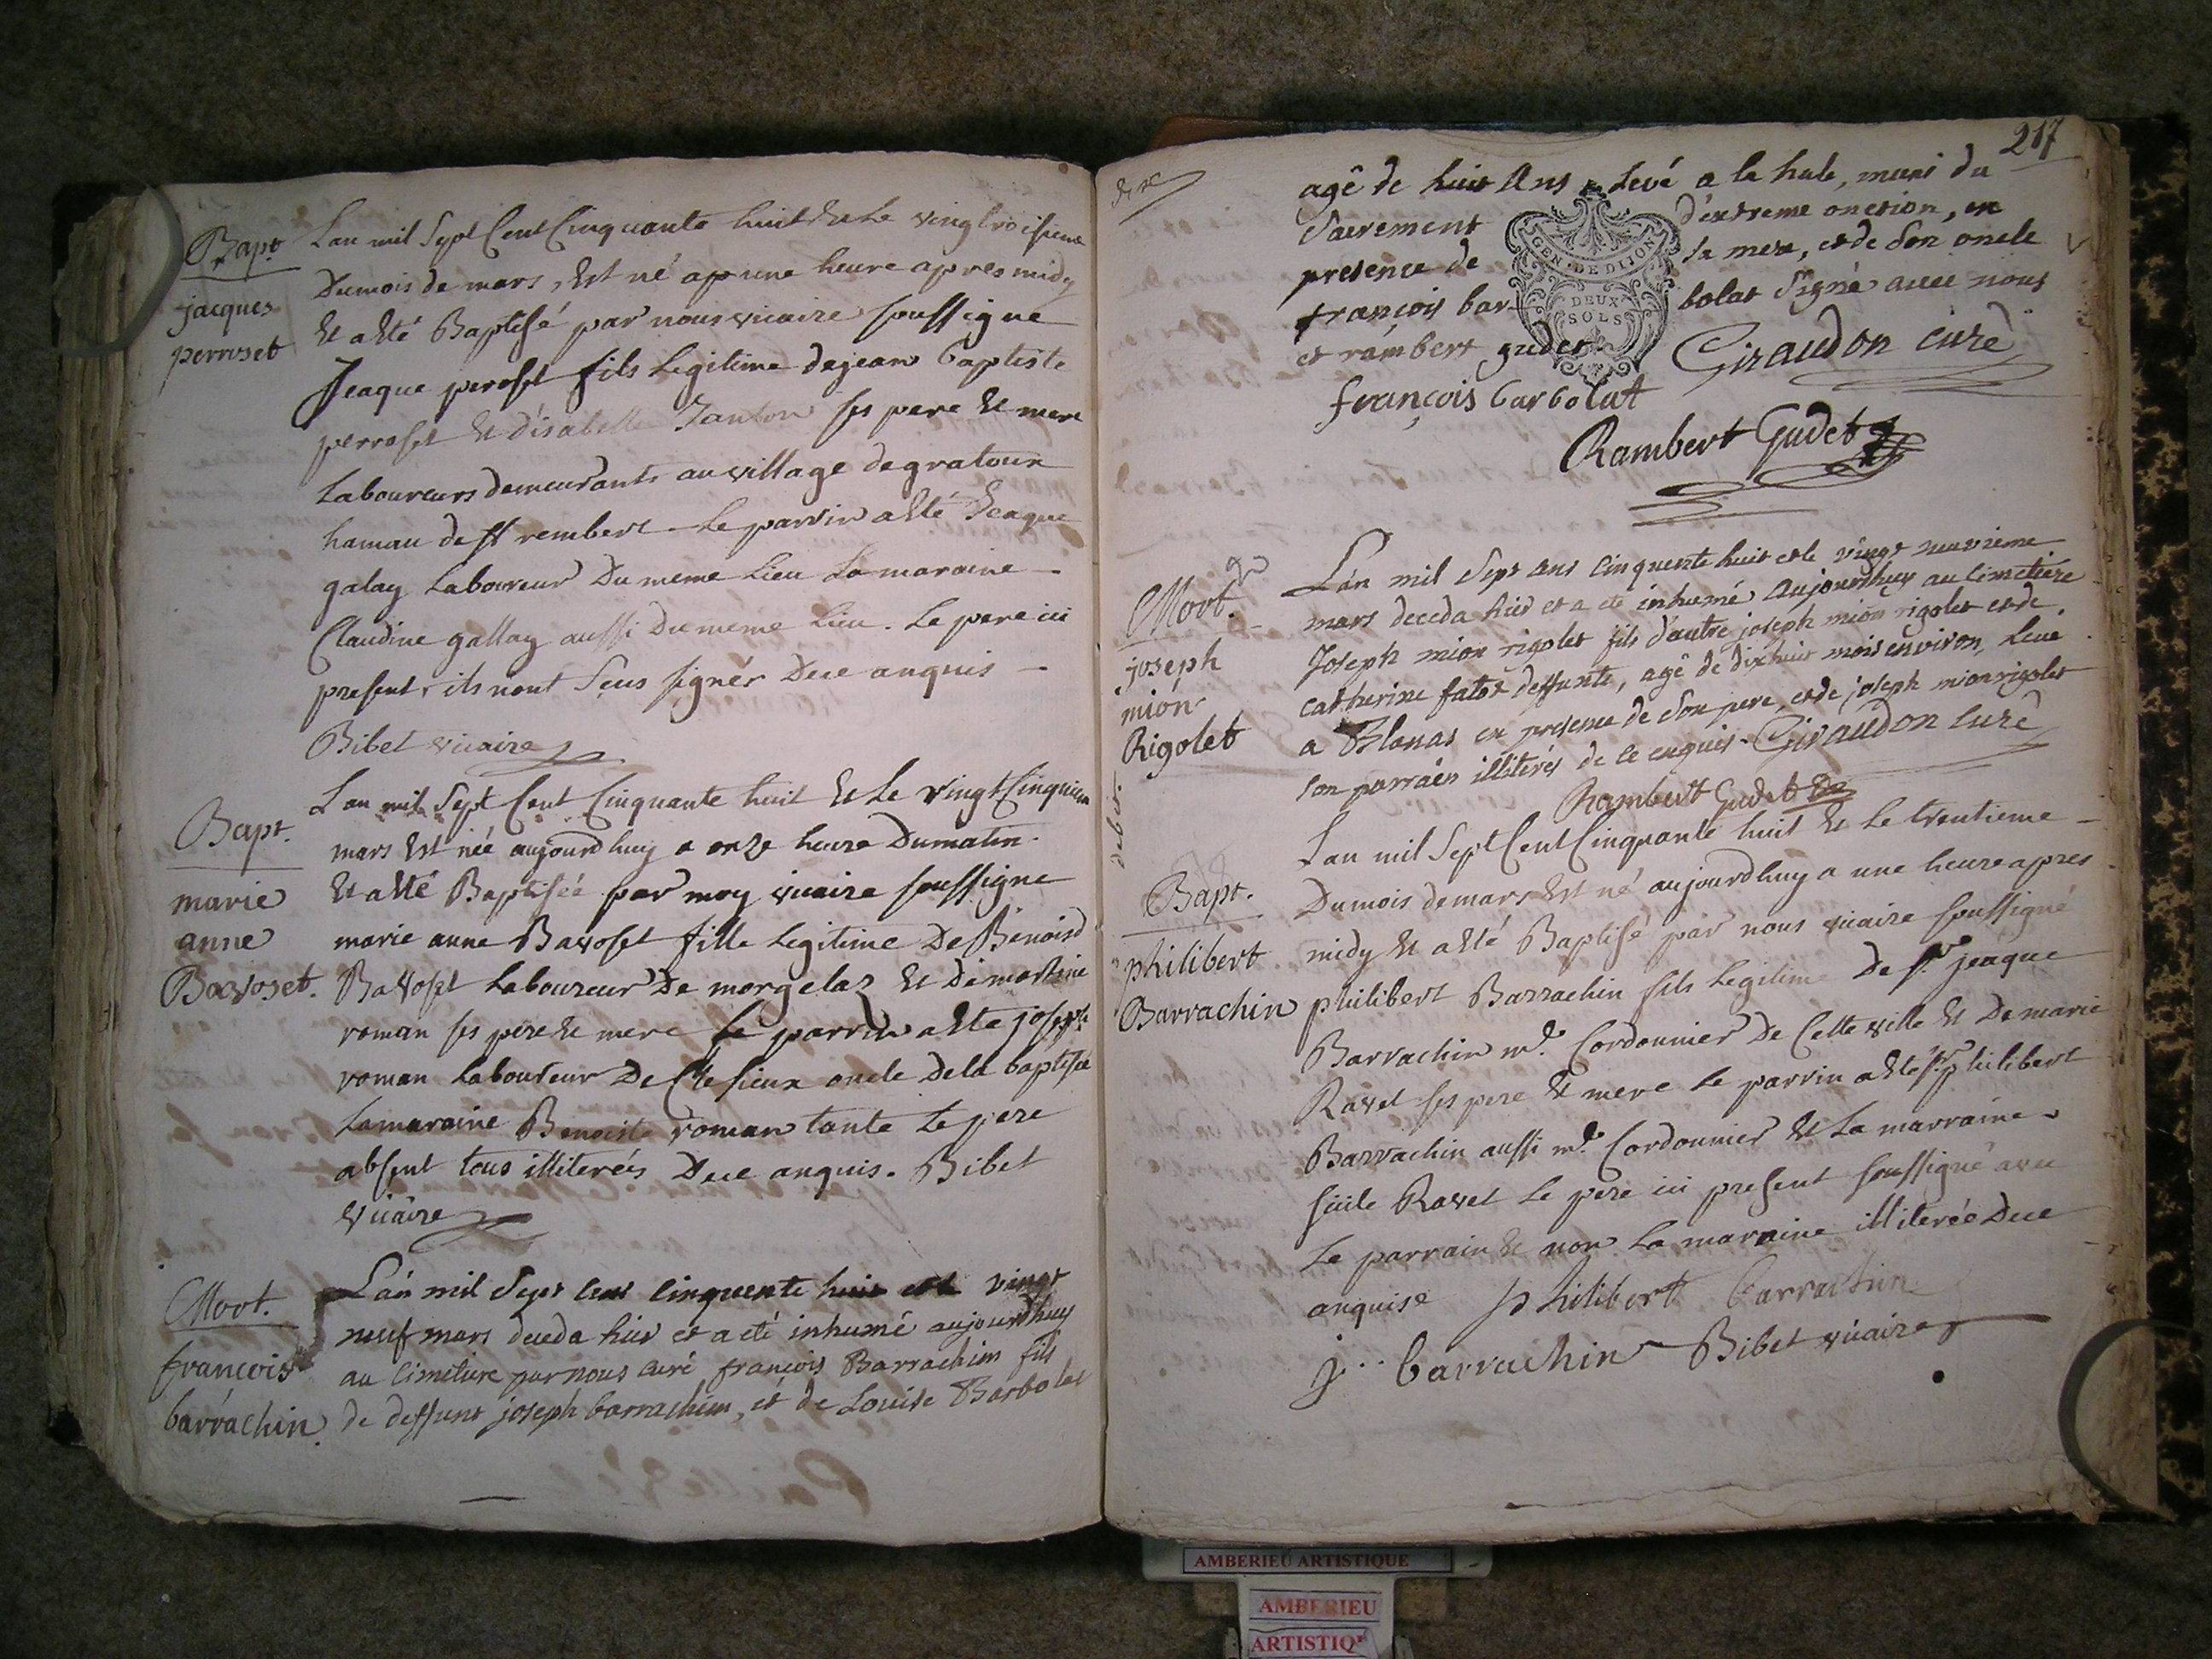 Bapt
jacques
perroset
Lan mil Sept Cent Cinquante huit & le vingtroisieme
Dumois de mars, est né apune heure apres midy
Et a été Baptisé par nous vicaire soussigne
Jeaque peroset fils legitime dejean baptiste
perroset & d'isabelle Janton ses pere & mere
Laboureurs demeurants au village degratoux
hamau de st rembert Le parrin a été Jeaque
galay Laboureur Du meme Lieu La maraine
Claudine gallay aussi Du meme Lieu. Le pere ici
present, ils nont sçus signér Dece anquis
Bibet vicaire
Bapt.
marie
anne
Bavoset.
Lan mil Sept Cent Cinquante huit & Le vingtCinquieme
mars Est née aujourdhuy a onze heure Dumatin
Et a été Baptisée par moy vicaire soussigne
marie anne Bavoset fille Legitime De Benoist
Bavoset Laboureur De morgelaz & Di martine
roman ses pere & mere Le parrin a été joseph
roman Laboureur De Clésieux oncle Dela baptisée
La maraine Benoiste roman tante Le pere
absent tous illiterées Dece anquis. Bibet
vicaire
Mort.
françois
barrachin
L'an mil Sept cens cinquente huit et le vingt
neuf mars deceda hier et a eté inhumé aujourdhuy
au cimetiere par nous curé françois Barrachin fils
de deffunt joseph barrachin, et de Louise Barbolat
217
agê de huit Ans levé a la hale, muni du
Sacrement d'extreme onction, en
presence de sa mere, et de Son oncle
françois bar- bolat Signé avec nous
et rambert gudet
GEN. DE DIJON
DEUX
SOLS
Giraudon curé
françois barbolat
Rambert Gudet
Mort.
joseph
mion
Rigolet
L'an mil Sept ans cinquente huit et le vingt neuvieme
mars deceda hier et a eté inhumé aujourdhuy au cimetiere
Joseph mion rigolet fils d'autre joseph mion rigolet et de
catherine fator deffunte, agê de dixhuit mois environ, levé
a Blanas en presence de Son pere, et de joseph mion rigolet
son parrain illiterés de ce enquis - Giraudon curé
Rambert Gudet
Bapt.
philibert
Barrachin
Lan mil Sept Cent Cinquante huit & Le trentieme
Dumois demars Est né aujourdhuy a une heure apres
midy & a été Baptisé par nous vicaire soussigné
philibert Barrachin fils Legitime De sr jeaque
Barrachin md. Cordonnier De Cette ville & De marie
Ravet ses pere & mere Le parrin a été sr philibert
Barrachin aussi md. Cordonnier & La marraine
Ravet Le pere ici present soussigné avec
Le parrain & non La maraine illiterée Dece
anquise philibert barrachin
j. barrachin Bibet vicaire
AMBERIEU ARTISTIQUE
AMBERIEU
ARTISTIQ